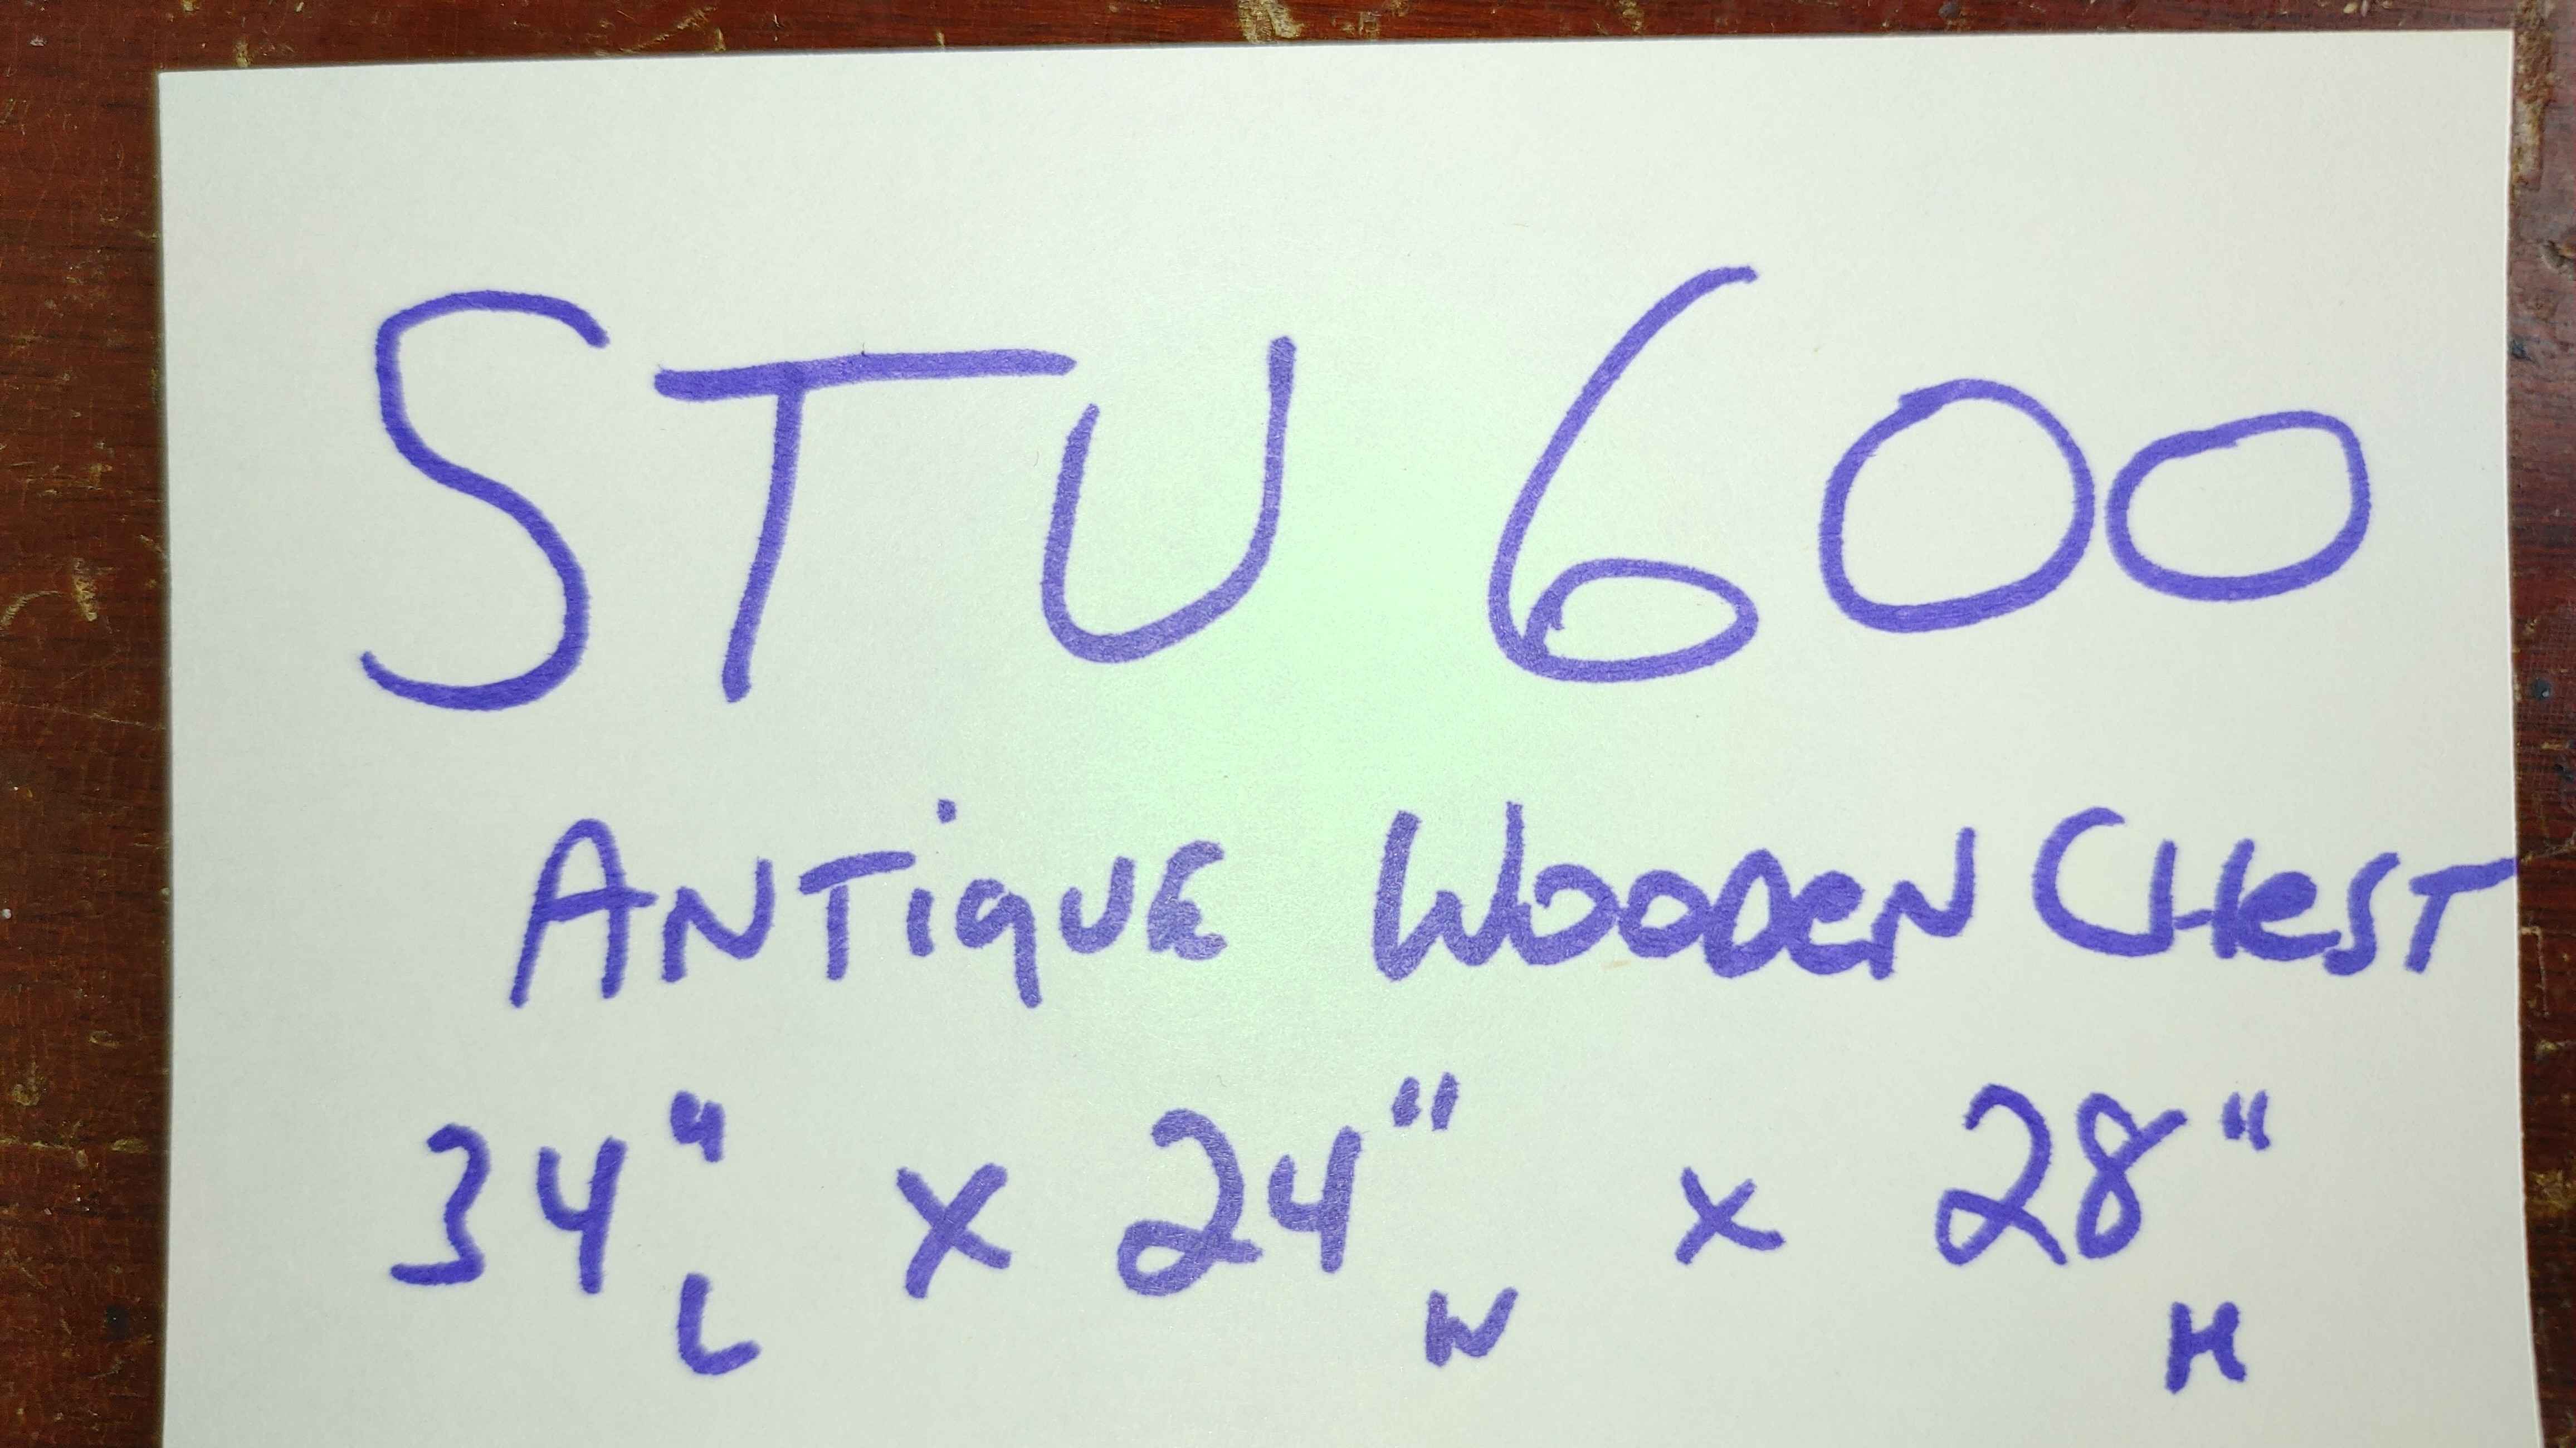 STU 600
ANTiQUE WOODEN CHeST
34" x 24" x 28"
L W H